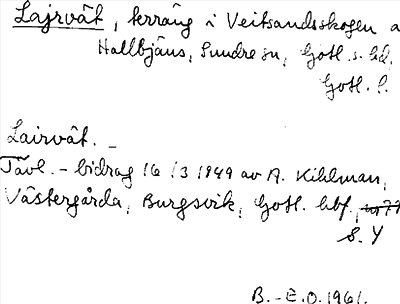 Lajrvät, terräng i Veitsandsskogen a
Hallbjäns, Sundre sn, Gotl. s. hd.
Gotl. l.
Lairvät. –
Tävl. – bidrag 16/3 1949 av A. Kihlman,
Västergårda, Burgsvik, Gotl. hbf.,
s. Y
B. – E. O. 1961.